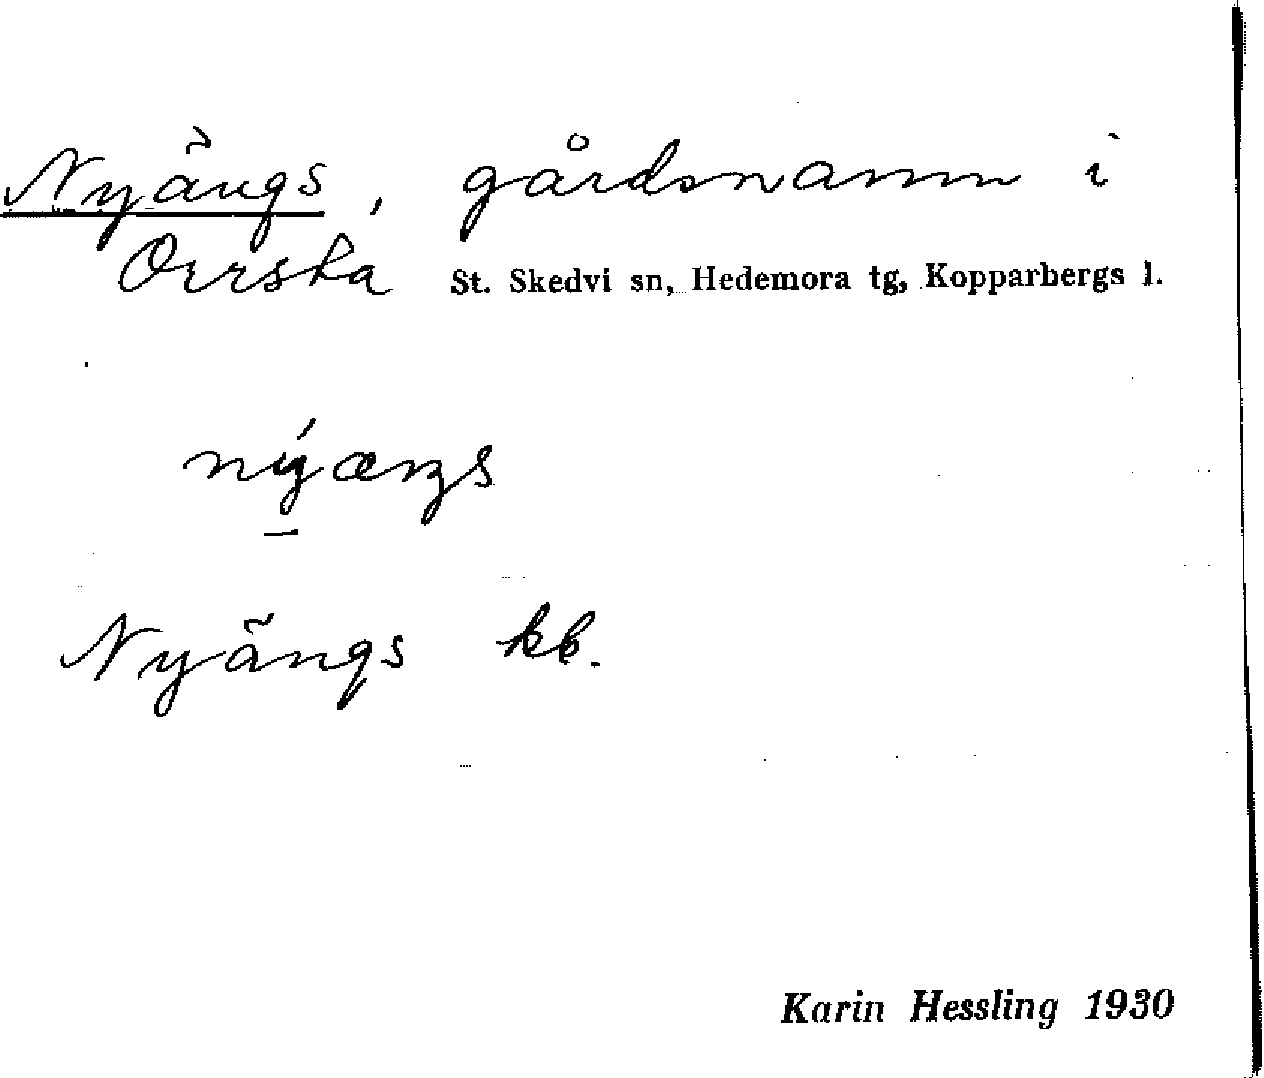 Nyängs, gårdsnamn i
Orrska St. Skedvi sn, Hedemora tg, Kopparbergs l.
nýæŋs
Nyängs kb.
Karin Hessling 1930